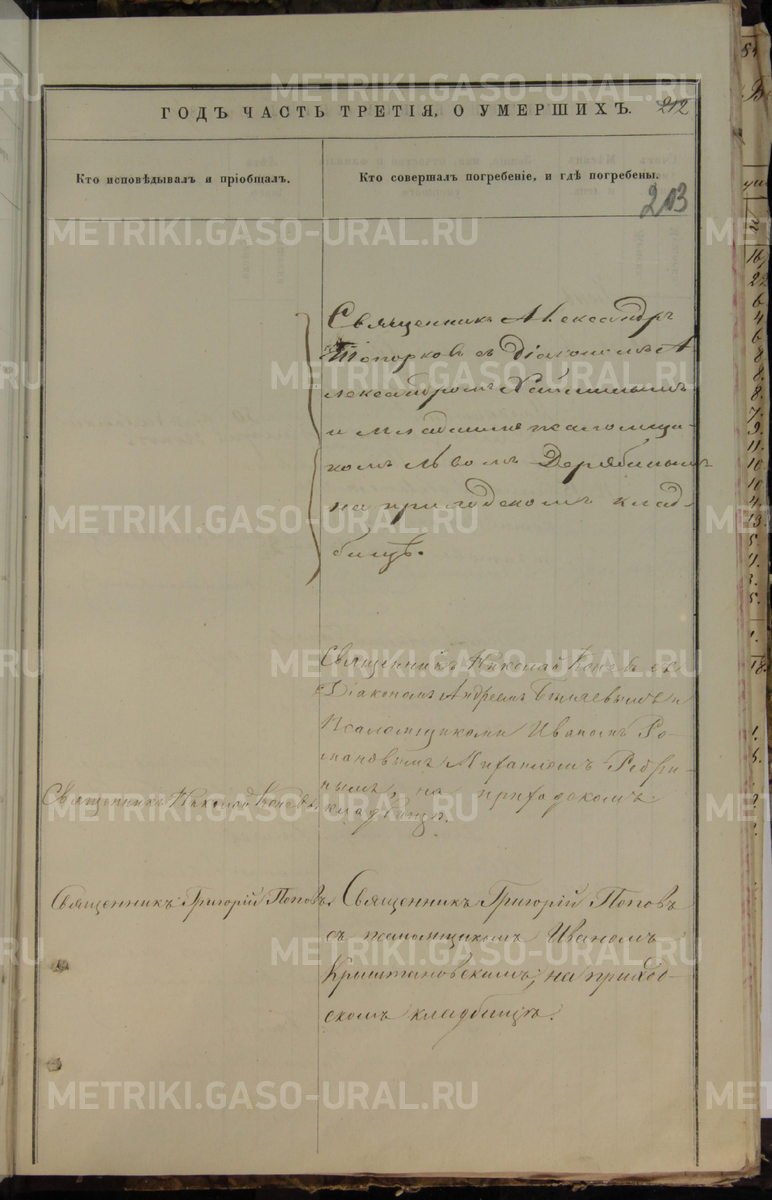 ГОДЪ ЧАСТЬ ТРЕТІЯ, О УМЕРШИХЪ. 212
Кто исповѣдывалъ и пріобщалъ.
Кто совершалъ погребеніе, и гдѣ погребены.
203
Священникъ Александръ
Топорковъ съ Діакономъ А
лександромъ
и младшимъ псаломщи
комъ Львомъ Дерябинымъ
на приходскомъ клад
бищѣ.
Священникъ Николай Коневъ съ
Діакономъ Андреемъ и
Псаломщиками Иваномъ Ро
мановымъ Михаиломъ Ребри
нымъ, на приходскомъ
кладбищѣ.
Священникъ Николай Коневъ
Священникъ Григорій Поповъ
Священникъ Григорій Поповъ
съ псаломщикомъ Иваномъ
Криштановскимъ, на приход
скомъ кладбищѣ.
METRIKI.GASO-URAL.RU